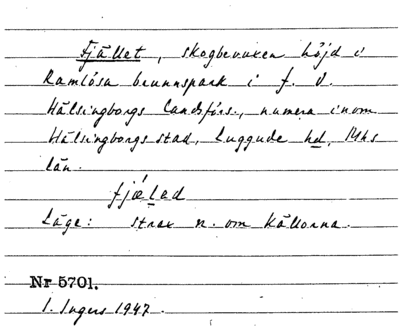 Fjället, skogbevuxen höjd i
Ramlösa brunnspark i f. d.
Hälsingborgs landsförs., numera inom
Hälsingborgs stad, Luggude hd, Mhs
län.
fjæled
Läge: strax n. om källorna.
Nr 5701.
I. Ingers 1947.